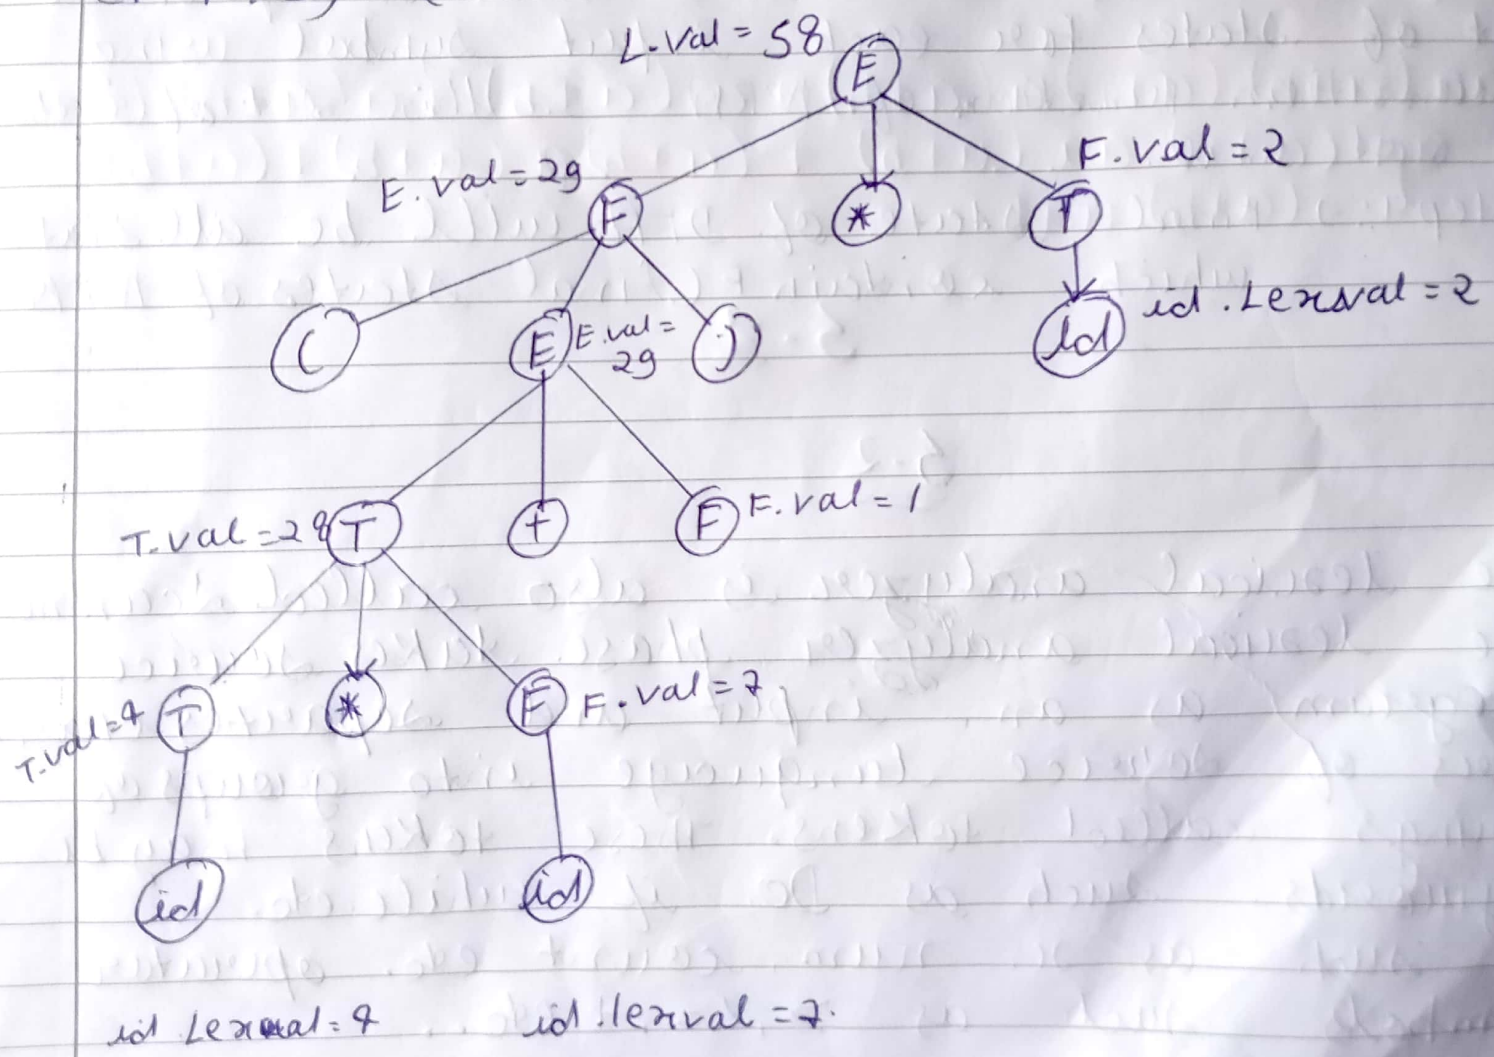 L.val = 58
E
F.val = 2
E.val = 29
F
*
T
id.Lexval = 2
(
E
E.val =
29
)
id
T.val = 28
T
+
F
F.val = 1
T.val = 4
T
*
F
F.val = 7
id
id
id Lexval = 4
id.lexval = 7.